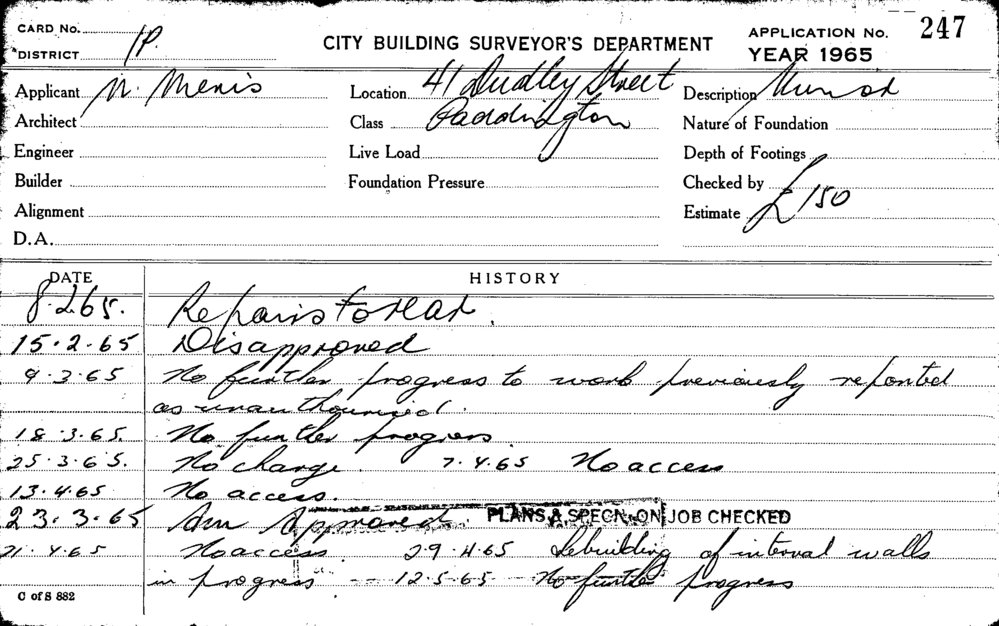 CARD No.
DISTRICT 1P.
CITY BUILDING SURVEYOR'S DEPARTMENT
APPLICATION No. 247
YEAR 1965
Applicant N. Menis
Location 41 Dudley Street
Description
Architect
Class Paddington
Nature of Foundation
Engineer
Live Load
Depth of Footings
Builder
Foundation Pressure
Checked by
Alignment
Estimate £150
D.A.
DATE HISTORY
8.2.65. Repairs to rear.
15.2.65 Disapproved
9.3.65 No further progress to work previously reported
as unauthourised.
18.3.65. No further progress.
25.3.65. No change. 7.4.65 No access
13.4.65 No access.
23.3.65 Approved. PLANS & SPECN. ON JOB CHECKED
21.4.65 No access. 29.4.65 Rebuilding of internal walls
in progress -- 12.5.65 -- No further progress
C of S 882